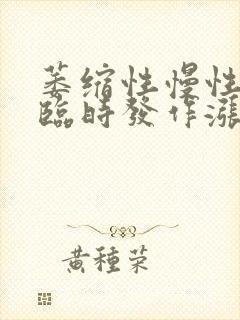 萎缩性慢性
臨時發作漲
黄種荣